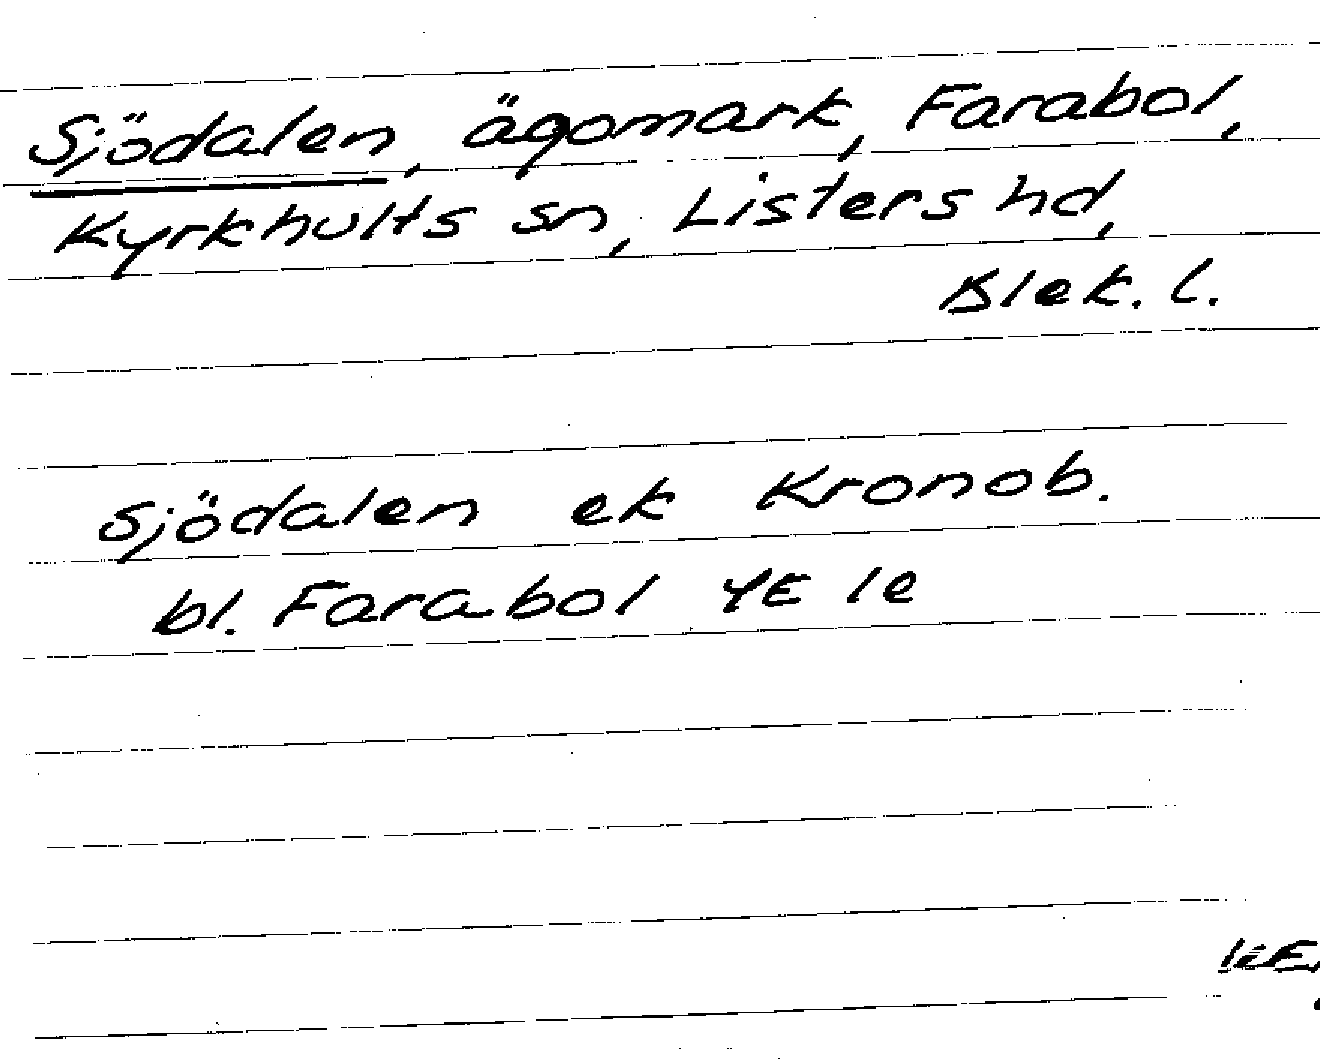 Sjödalen, ägomark, Farabol,
Kyrkhults sn, Listers hd,
Blek. l.
Sjödalen ek Kronob.
bl. Farabol 4E 1e